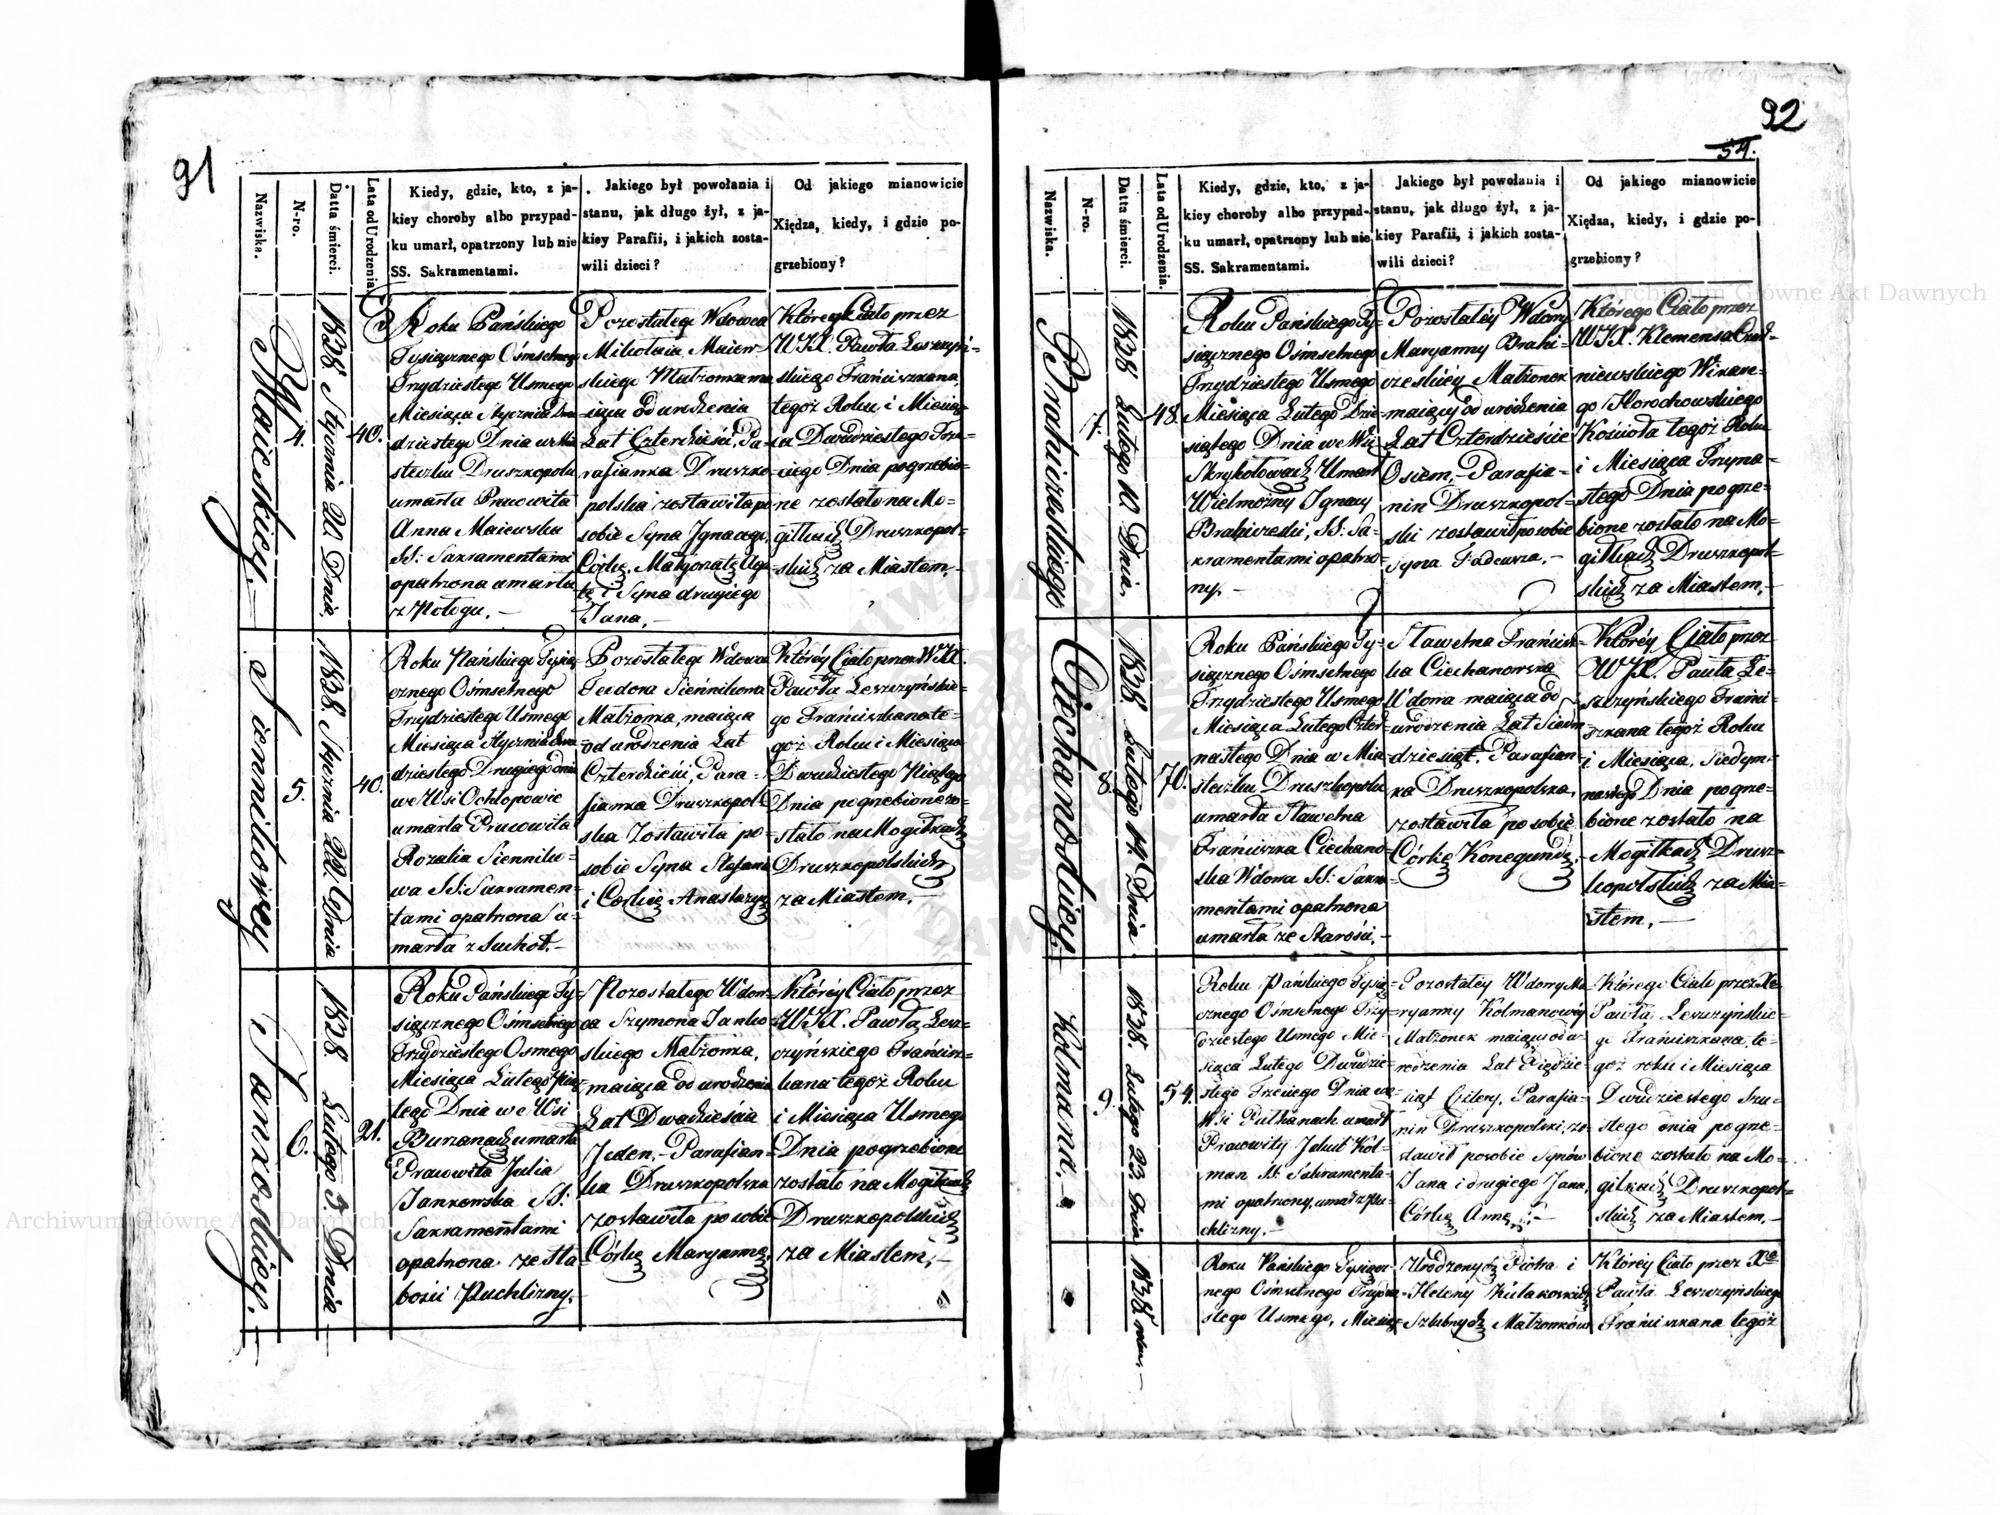 91
Nazwiska.
N-ro.
Datta śmierci.
Lata od Urodzenia.
Kiedy, gdzie, kto, z ja-
kiey choroby albo przypad-
ku umarł, opatrzony lub nie
SS. Sakramentami.
Jakiego był powołania i
stanu, jak długo żył, z ja-
kiey Parafii, i jakich zosta-
wili dzieci?
Od jakiego mianowicie
Xiędza, kiedy, i gdzie po-
grzebiony?
Maiewskiey.
4.
1838 Stycznia 20 Dnia
40.
Roku Pańskiego
Tysiącznego Ośmsetnego
Trzydziestego Usmego
Miesiąca Stycznia Dwu
dziestego Dnia w Mia
steczku Druszkopolu
umarła Pracowita
Anna Maiewska
SS: Sakramentami
opatrzona umarła
z Połogu.—
Pozostałego Wdowca
Mikołaia Maiew-
skiego Małżonka ma
iąca od urodzenia
Lat Czterdzieści, Pa-
rafianka Druszko-
polska zostawiła po
sobie Syna Ignacego,
Córkę Małgorzatę Aga
tę i Syna drugiego
Jana.—
Którey Ciało przez
WJX. Pawła Leszczyń-
skiego Franciszkana,
tegoż Roku i Miesią-
ca Dwudziestego Trze-
ciego Dnia pogrzebio-
ne zostało na Mo-
giłkach Druszkopol-
skich za Miastem.—
Siennikowey
5.
1838. Stycznia 22. Dnia
40.
Roku Pańskiego Tysią-
cznego Ośmsetnego
Trzydziestego Usmego
Miesiąca Stycznia Dwu
dziestego Drugiego Dnia
we Wsi Ochłopowie
umarła Pracowita
Rozalia Sienniko-
wa SS: Sakramen-
tami opatrzona
marła z Suchot.—
Pozostałego Wdowca
Teodora Siennikowa
Małżonka, maiąca
od urodzenia Lat
Czterdzieści, Para-
fianka Druszkopol-
ska Zostawiła po-
sobie Syna Stefana
i Córkę Anastazyę
Którey Ciało przez WJX.
Pawła Leszczyńskie-
go Franciszkana te-
goż Roku i Miesiąca
Dwudziestego Piątego
Dnia pogrzebione zo-
stało na Mogiłkach
Druszkopolskich
za Miastem.—
Jankowskiey.
6.
1838. Lutego 5. Dnia
21.
Roku Pańskiego Ty-
siącznego Ośmsetnego
Trzydziestego Osmego
Miesiąca Lutego Pią-
tego Dnia we Wsi
Burzanach umarła
Pracowita Julia
Jankowska SS:
Sakramentami
opatrzona ze Sła
bości Puchlizny.
Pozostałego Wdow-
ca Szymona Janko-
skiego Małżonka,
maiąca od urodzenia
Lat Dwadzieścia
Jeden,— Parafian-
ka Druszkopolska
zostawiła po sobie
Córkę Maryannę.
Którey Ciało przez
WJX. Pawła Lesz-
czyńskiego Francisz-
kana tegoż Roku
i Miesiąca Usmego
Dnia pogrzebione
zostało na Mogiłkach
Druszkopolskich
za Miastem.—
92
54.
Nazwiska.
N-ro.
Datta śmierci.
Lata od Urodzenia.
Kiedy, gdzie, kto, z ja-
kiey choroby albo przypad-
ku umarł, opatrzony lub nie
SS. Sakramentami.
Jakiego był powołania i
stanu, jak długo żył, z ja-
kiey Parafii, i jakich zosta-
wili dzieci?
Od jakiego mianowicie
Xiędza, kiedy, i gdzie po-
grzebiony?
7.
1838 Lutego 10 Dnia.
48.
Roku Pańskiego Ty-
siącznego Ośmsetnego
Trzydziestego Usmego
Miesiąca Lutego Dzie-
siątego Dnia we Wsi
Umarł
Wielmożny Ignacy
SS: Sa-
kramentami opatrzo-
ny.—
Pozostałey Wdowy
Maryanny
Małżonek
maiący od urodzenia
Lat Czterdzieście
Osiem,— Parafia-
nin Druszkopol-
ski zostawił po sobie
Syna Tadeusza.—
Którego Ciało przez
WJX. Klemensa
niewskiego Wikare-
go Horochowskiego
Kościoła tegoż Roku
i Miesiąca Trzyna-
stego Dnia pogrze-
bione zostało na Mo-
giłkach Druszkopol-
skich za Miastem.—
Ciechanowskiey
8.
1838 Lutego 14 Dnia
70.
Roku Pańskiego Ty-
siącznego Ośmsetnego
Trzydziestego Usmego
Miesiąca Lutego Czter-
nastego Dnia w Mia
steczku Druszkopolu
umarła Sławetna
Franciszka Ciechano-
ska Wdowa SS: Sakra-
mentami opatrzona
umarła ze Starości.—
Sławetna Francisz-
ka Ciechanowska
Wdowa maiąca od
urodzenia Lat Siedm
dziesiąt, Parafian-
ka Druszkopolska,
zostawiła po sobie
Córkę Konegundę.
Którey Ciało przez
WJX. Pawła Le-
szczyńskiego Franci-
szkana tegoż Roku
i Miesiąca, Siedym-
nastego Dnia pogrze-
bione zostało na
Mogiłkach Drusz-
kopolskich za Mia-
stem.—
Kolmana.
9.
1838. Lutego 23. Dnia
54.
Roku Pańskiego Tysią-
cznego Ośmsetnego Trzy-
dziestego Usmego Mie-
siąca Lutego Dwudzie-
stego Trzeciego Dnia we
Wsi Pułhanach umarł
Pracowity Jakub Kol-
man SS: Sakramenta-
mi opatrzony, umarł z Pu-
chlizny.—
Pozostałey Wdowy Ma-
ryanny Kolmanowey
Małżonek maiący od u-
rodzenia Lat Pięćdzie-
siąt Cztery, Parafia-
nin Druszkopolski, zo-
stawił po sobie Synów
Jana i drugiego Jana,
Córkę Annę.—
Którego Ciało przez Xa
Pawła Leszczyńskie-
go Franciszkana, te-
goż roku i Miesiąca
Dwudziestego Szu-
stego dnia pogrze-
bione zostało na Mo-
giłkach Druszkopol-
skich za Miastem.—
1838
Roku Pańskiego Tysiącz-
nego Ośmsetnego Trzydzie-
stego Usmego, Miesią-
Urodzonych Piotra i
Heleny Kułakowskich
Szlubnych Małżonków
Którey Ciało przez Xa
Pawła Leszczyńskiego
Franciszkana tegoż
Archiwum Główne Akt Dawnych
Archiwum Główne Akt Dawnych